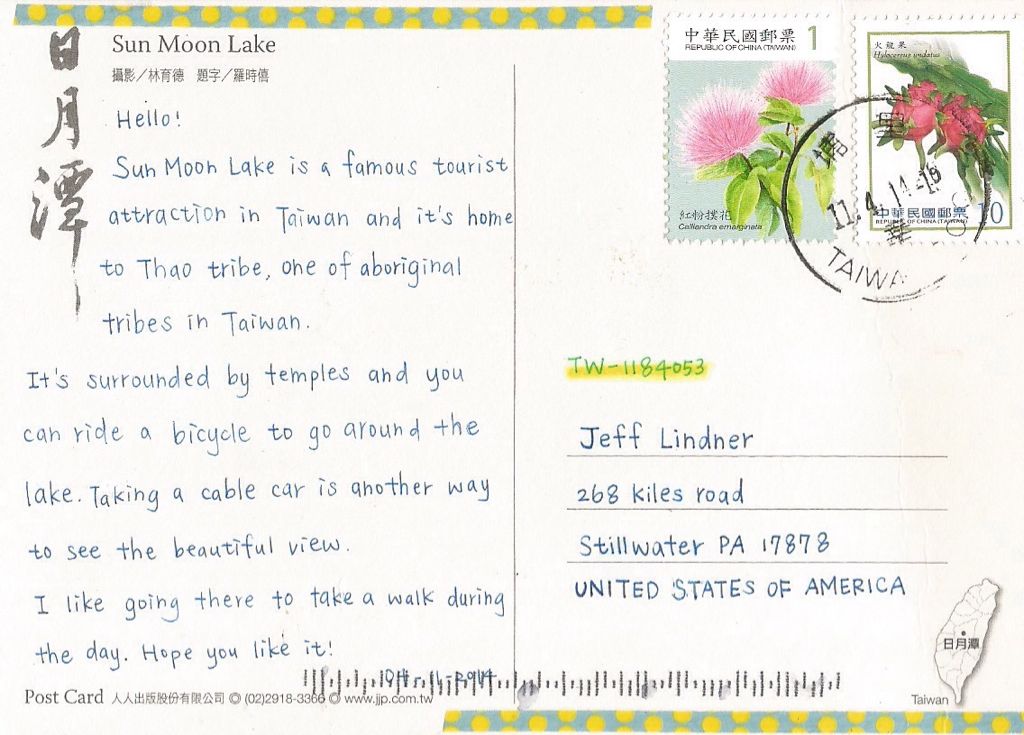 日月潭
Sun Moon Lake
攝影／林育德　題字／羅時僖
Hello!
Sun Moon Lake is a famous tourist
attraction in Taiwan and it's home
to Thao tribe, one of aboriginal
tribes in Taiwan.
It's surrounded by temples and you
can ride a bicycle to go around the
lake. Taking a cable car is another way
to see the beautiful view.
I like going there to take a walk during
the day. Hope you like it!
11-2014
Post Card 人人出版股份有限公司 ◎ (02)2918-3366 ◎ www.jjp.com.tw
中華民國郵票 1
REPUBLIC OF CHINA (TAIWAN)
紅粉撲花
Calliandra emarginata
火龍果
Hylocereus undatus
中華民國郵票 10
REPUBLIC OF CHINA (TAIWAN)
11.4.14-16
TAIWA
TW-1184053
Jeff Lindner
268 Kiles road
Stillwater PA 17878
UNITED STATES OF AMERICA
日月潭
Taiwan